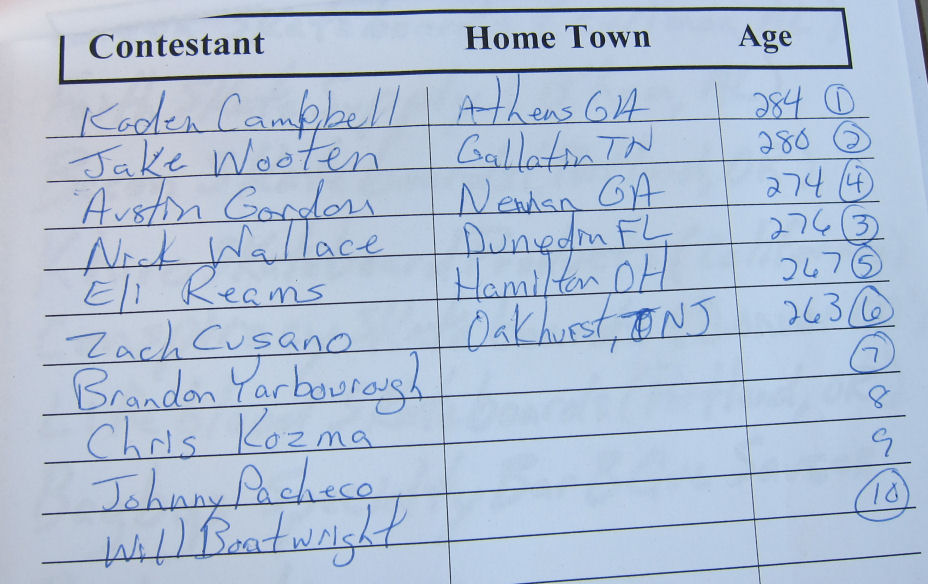 Contestant Home Town Age
Kaden Campbell Athens GA 284 1
Jake Wooten Gallatin TN 280 2
Austin Gordon Newnan GA 274 4
Nick Wallace Dunedin FL 276 3
Eli Reams Hamilton OH 267 5
Zach Cusano Oakhurst, NJ 263 6
Brandon Yarbourough 7
Chris Kozma 8
Johnny Pacheco 9
Will Boatwright 10